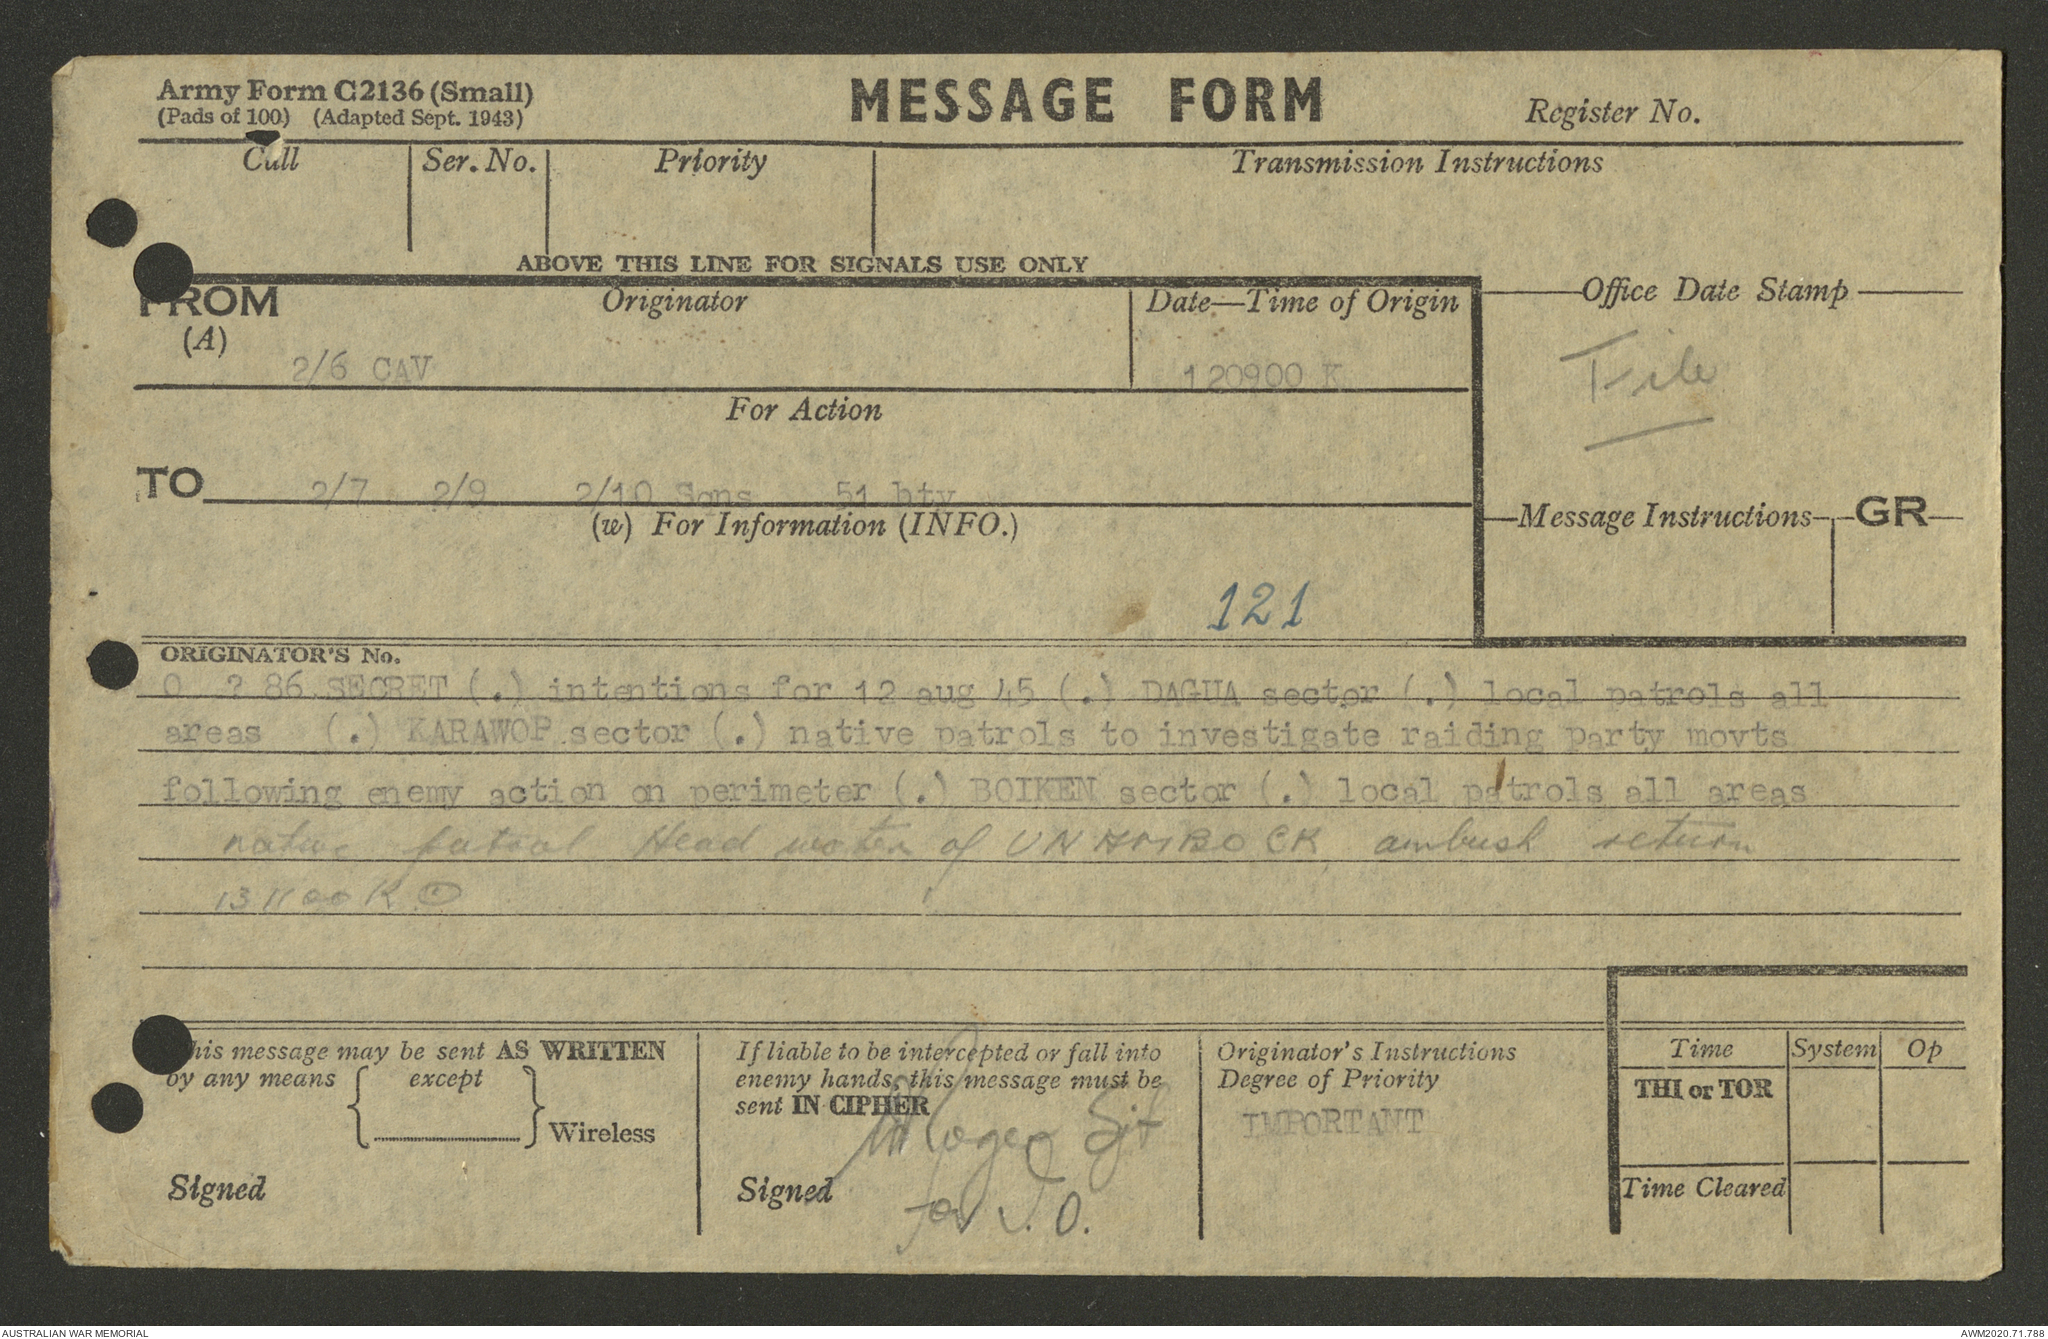 Army Form C2136 (Small)
(Pads of 100.) (Adapted Sept. 1943)
MESSAGE FORM
Register No.
Call Ser. No. Priority Transmission Instructions
ABOVE THIS LINE FOR SIGNALS USE ONLY
FROM (A)
Originator
2/6 CAV
Date—Time of Origin
120900 K
Office Date Stamp
File
For Action
TO 2/7 2/9 2/10 Sqns 51 bty
(w) For Information (INFO.)
Message Instructions GR
121
ORIGINATOR'S No.
O ? 86 SECRET (.) intentions for 12 aug 45 (.) DAGUA sector (.) local patrols all
areas (.) KARAWOP sector (.) native patrols to investigate raiding party movts
following enemy action on perimeter (.) BOIKEN sector (.) local patrols all areas
native patrol Head water of UNAMBO CK ambush return
131100 K (.)
This message may be sent AS WRITTEN
by any means except
Wireless
Signed
If liable to be intercepted or fall into
enemy hands, this message must be
sent IN CIPHER
Sjt
Signed
for I.O.
Originator's Instructions
Degree of Priority
IMPORTANT
Time System Op
THI or TOR
Time Cleared
AUSTRALIAN WAR MEMORIAL
AWM2020.71.788